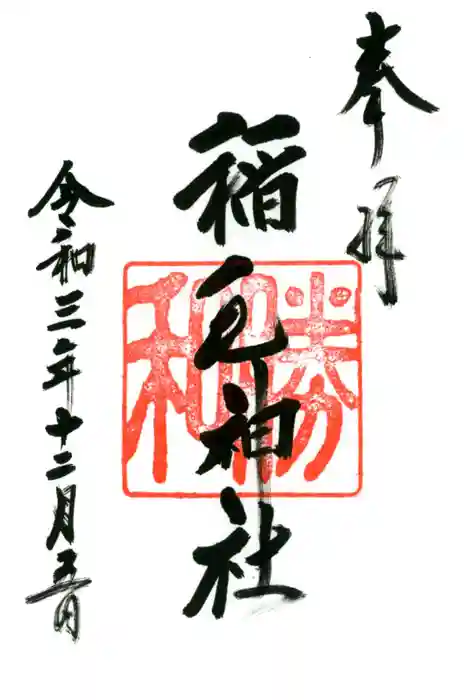 奉拝
勝和
稲毛神社
令和三年十二月五日